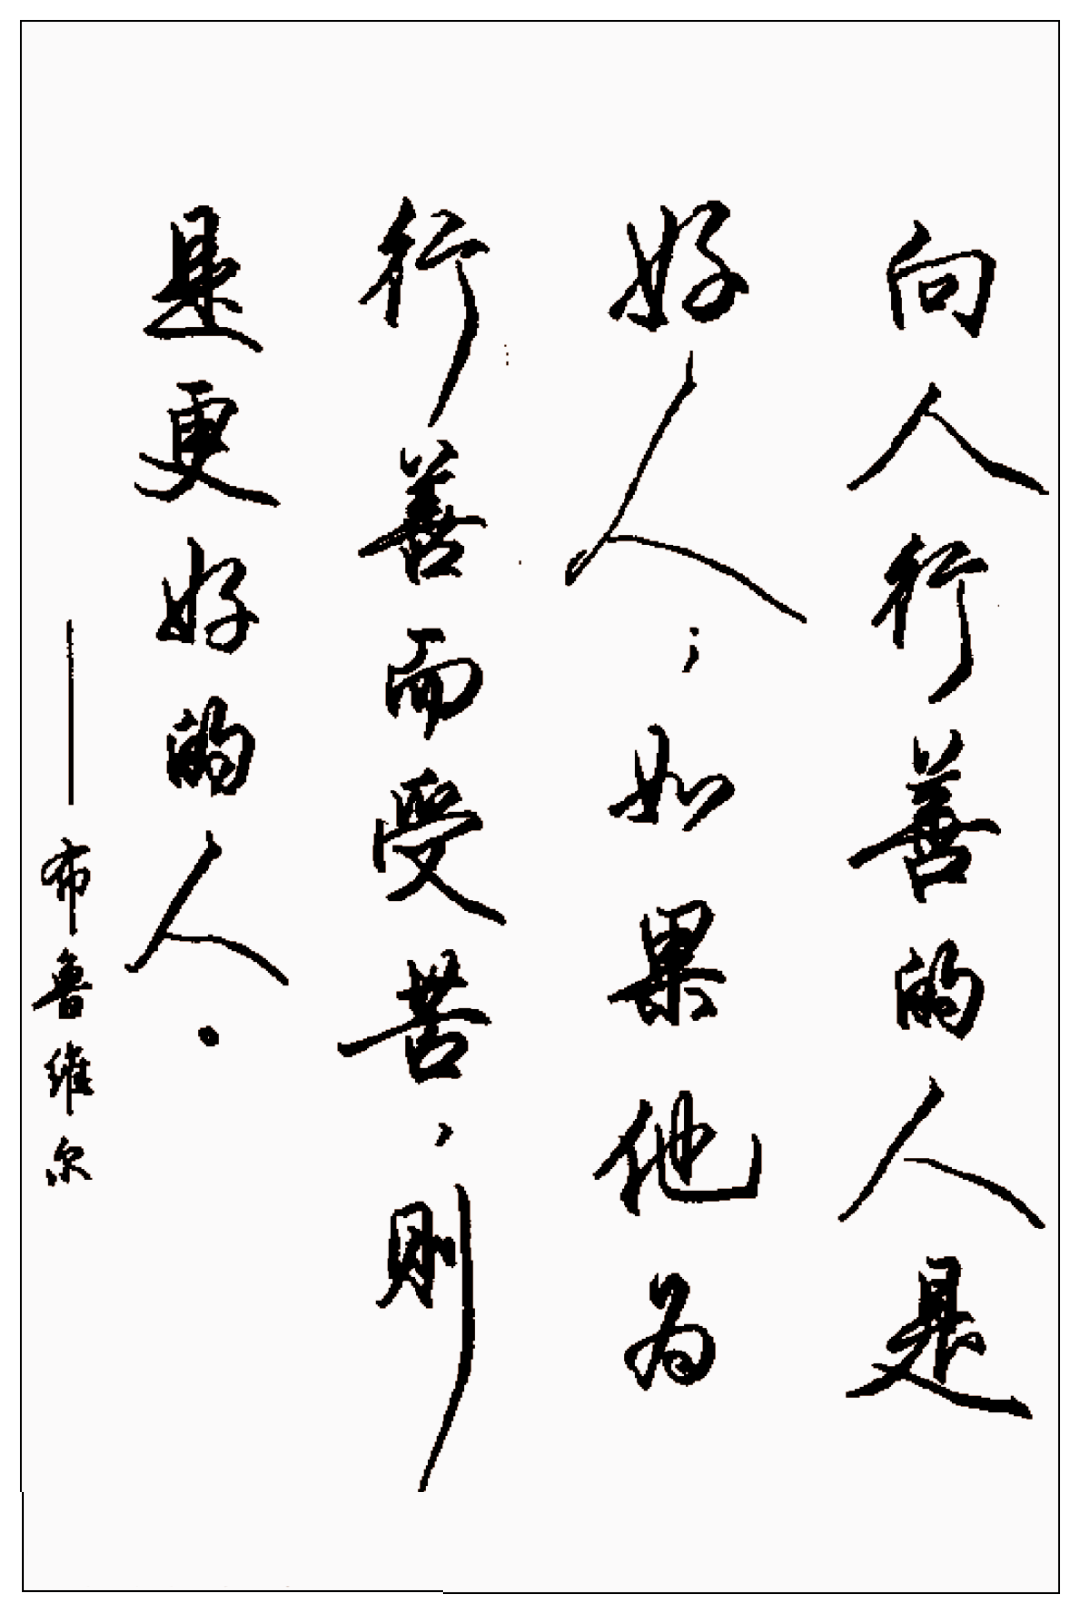 向人行善的人是
好人；如果他为
行善而受苦，则
是更好的人．
——布鲁维尔